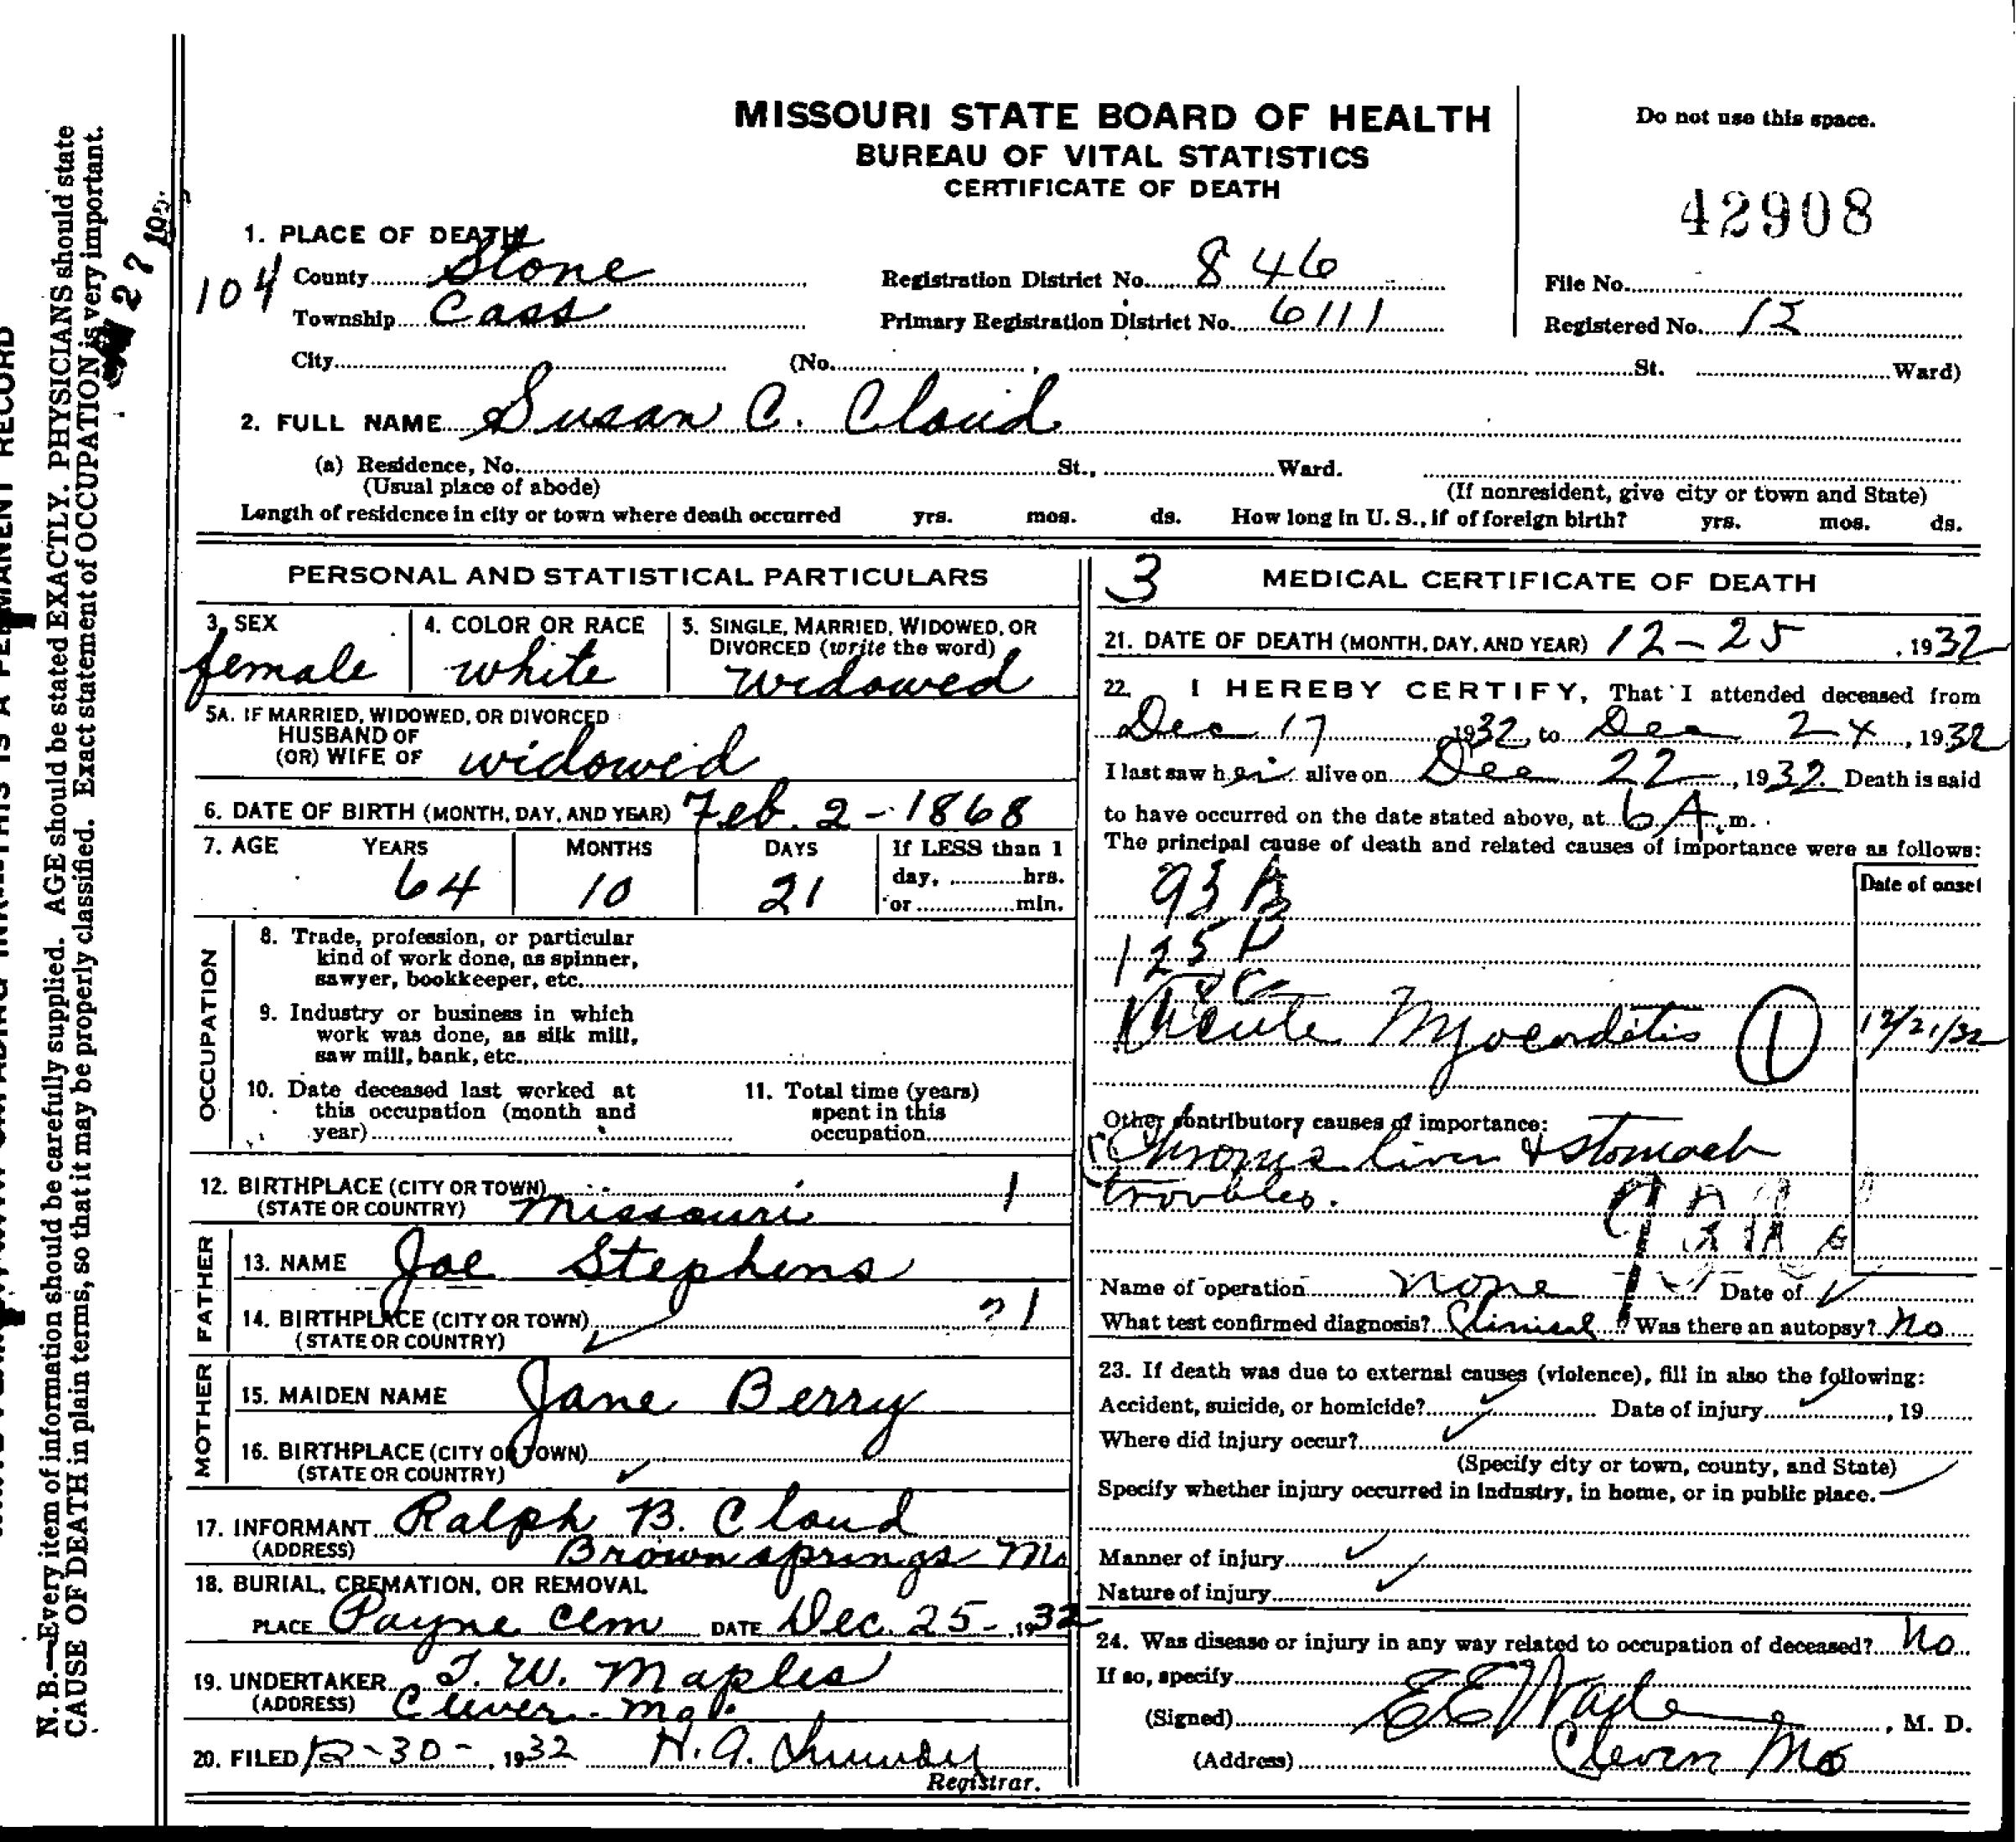 MISSOURI STATE BOARD OF HEALTH
BUREAU OF VITAL STATISTICS
CERTIFICATE OF DEATH
Do not use this space.
42908
1. PLACE OF DEATH
104 County Stone Registration District No. 846 File No.
Township Cass Primary Registration District No. 6111 Registered No. 12
City (No. , St. Ward)
2. FULL NAME Susan C. Cloud
(a) Residence, No. St., Ward.
(Usual place of abode) (If nonresident, give city or town and State)
Length of residence in city or town where death occurred yrs. mos. ds. How long in U. S., if of foreign birth? yrs. mos. ds.
PERSONAL AND STATISTICAL PARTICULARS
3. SEX 4. COLOR OR RACE 5. SINGLE, MARRIED, WIDOWED, OR
DIVORCED (write the word)
female white widowed
5A. IF MARRIED, WIDOWED, OR DIVORCED
HUSBAND OF
(OR) WIFE OF widowed
6. DATE OF BIRTH (MONTH, DAY, AND YEAR) Feb. 2 - 1868
7. AGE YEARS MONTHS DAYS If LESS than 1
day, hrs.
64 10 21 or min.
OCCUPATION
8. Trade, profession, or particular
kind of work done, as spinner,
sawyer, bookkeeper, etc.
9. Industry or business in which
work was done, as silk mill,
saw mill, bank, etc.
10. Date deceased last worked at
this occupation (month and
year)
11. Total time (years)
spent in this
occupation
12. BIRTHPLACE (CITY OR TOWN) 1
(STATE OR COUNTRY) Missouri
FATHER
13. NAME Joe Stephens
14. BIRTHPLACE (CITY OR TOWN) 21
(STATE OR COUNTRY)
MOTHER
15. MAIDEN NAME Jane Berry
16. BIRTHPLACE (CITY OR TOWN)
(STATE OR COUNTRY)
17. INFORMANT Ralph B. Cloud
(ADDRESS) Brownsprings Mo
18. BURIAL, CREMATION, OR REMOVAL
PLACE Payne Cem DATE Dec. 25 - 1932
19. UNDERTAKER T. W. Maples
(ADDRESS) Clever Mo.
20. FILED 12-30-, 1932 H. A.
Registrar.
3 MEDICAL CERTIFICATE OF DEATH
21. DATE OF DEATH (MONTH, DAY, AND YEAR) 12-25, 1932
22. I HEREBY CERTIFY, That I attended deceased from
Dec 17 1932, to Dec 24, 1932
I last saw her alive on Dec 22, 1932. Death is said
to have occurred on the date stated above, at 6 A. m.
The principal cause of death and related causes of importance were as follows:
Date of onset
93
125
Acute Myocarditis 1 12/21/32
Other contributory causes of importance:
Chronic liver & stomach
troubles.
Name of operation none Date of
What test confirmed diagnosis? Clinical Was there an autopsy? No
23. If death was due to external causes (violence), fill in also the following:
Accident, suicide, or homicide? Date of injury , 19
Where did injury occur?
(Specify city or town, county, and State)
Specify whether injury occurred in industry, in home, or in public place.
Manner of injury
Nature of injury
24. Was disease or injury in any way related to occupation of deceased? No
If so, specify
(Signed) E E Wade, M. D.
(Address) Clever Mo
N. B.—Every item of information should be carefully supplied. AGE should be stated EXACTLY. PHYSICIANS should state
CAUSE OF DEATH in plain terms, so that it may be properly classified. Exact statement of OCCUPATION is very important.